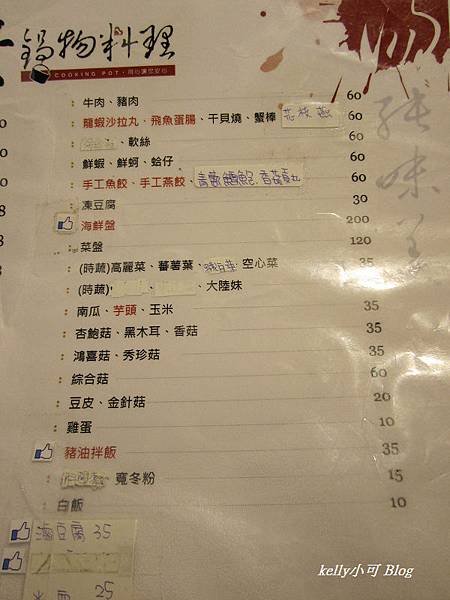 鍋物料理
COOKING POT · 用心讓您安心
牛肉、豬肉 60
龍蝦沙拉丸、飛魚蛋腸、干貝燒、蟹棒 花枝燕 60
軟絲 60
鮮蝦、鮮蚵、蛤仔 60
手工魚餃、手工燕餃、 60
凍豆腐 30
海鮮盤 200
菜盤 120
(時蔬)高麗菜、蕃薯葉、空心菜
(時蔬) 大陸妹
南瓜、芋頭、玉米 35
杏鮑菇、黑木耳、香菇 35
鴻喜菇、秀珍菇 35
綜合菇 60
豆皮、金針菇 20
雞蛋 10
豬油拌飯 35
寬冬粉 15
白飯 10
滷豆腐 35
25
kelly小可 Blog